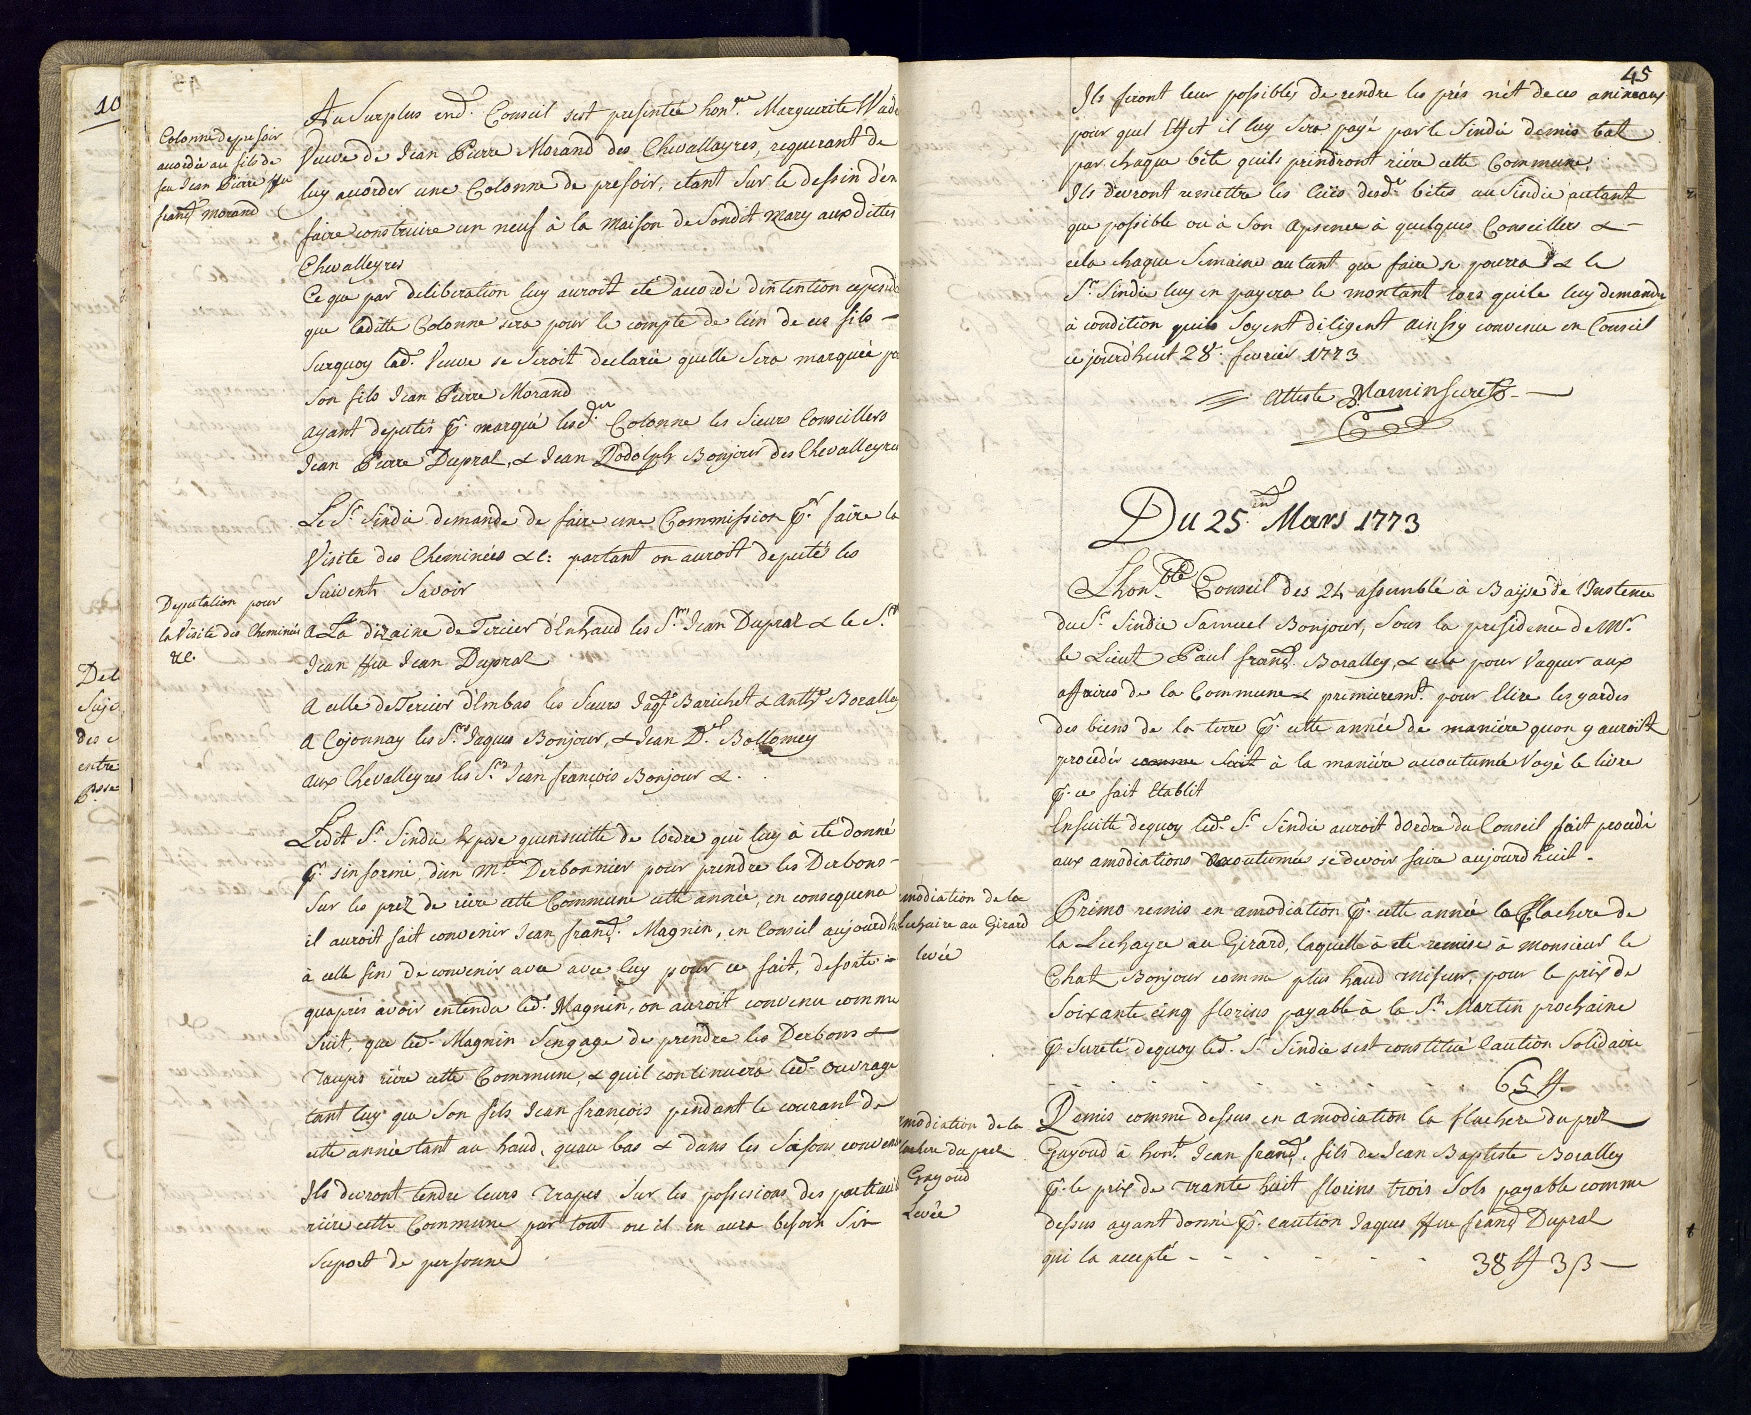 10
Colonne de pressoir
accordée au fils de
feu Jean Pierre ffeu
franç. morand
Au Surplus end. Conseil sest presentée hon.ée Marguerite Wad
Veuve de Jean Pierre Morand des Chevallayres, requerant de
luy accorder une Colonne de presoir, etant Sur le dessin d'en
faire construire un neuf à la maison de Sondit mary aux dittes
Chevalleyres
Ce que par deliberation luy auroit eté accordé d'intention cepend
que laditte Colonne sera pour le compte de l'un de ces fils –
Surquoy lad. Veuve se Seroit declarée quelle Sera marquée p
Son fils Jean Pierre Morand
ayant deputés p. marqué lesd. Colonne les Sieurs Conseillers
Jean Pierre Dupral, & Jean Rodolph Bonjour des Chevalleyres
Le S.r Sindic demande de faire une Commission p.r faire la
Visite des Cheminées &c: partant on auroit deputé les
Suivents Savoir
Deputation pour
la Visite des Cheminées
&c.
A La dizaine de Tercier d'Enhaud les S.rs Jean Dupraz & le S.r
Jean ffeu Jean Dupraz
A celle de Tercier d'Embas les Sieurs Jaq. Barichet & Anth. Boralley
A Cojonnay les S.rs Jaques Bonjour, & Jean D.el Bollomey
aux Chevalleyres les S.rs Jean françois Bonjour &.
Det
Suje
des c
entre
Ledit S.r Sindic Expose quensuitte de lordre qui luy à eté donné
p. sinformé, dun M.tre Derbonnier pour prendre les Derbons –
Sur les prez de riere cette Commune cette année, en consequence
il auroit fait convenir Jean franç. Magnin, en Conseil aujourdh
à celle fin de convenir avec avec luy pour ce fait, desorte –
quaprés avoir entendu led. Magnin, on auroit convenu comme
Suit, que led. Magnin Sengage de prendre les Derbons &
Taupes riere cette Commune, & quil continuera led. ouvrage
tant luy que Son fils Jean françois pendant le courant de
cette année tant au haud, quau bas & dans les Saisons conven
Ils devront tendre leurs Trapes Sur les possesions des particul
riere cette Commune par tout ou il en aura besoin Sin
Suport de personne
45
Ils feront leur possibles de rendre les prés nét de ces animaux
pour quel Effet il luy Sera payé par le Sindic demis bat
par chaque bête quils prindront riere cette Commune;
Ils devront remettre les desd. bêtes au Sindic autant
que possible ou à Son Apsence à quelques Conseillers & –
cela chaque Semaine autant que faire se pourra & le
S.r Sindic luy en payera le montant lors quils luy demande
à condition quils Soyent diligent ainssy convenu en Conseil
ce jourdhuit 28. fevrier 1773
Atteste Mamin Secret.
Du 25.em Mars 1773
Lhon.ble Conseil des 24 assemblé à Bayse de l'Instence
du S.r Sindic Samuel Bonjour, Sous la presidence de M.r
le Lieut Paul franç. Boralley, & cela pour Vaquer aux
affaires de la Commune & premierem.t pour Elire les gardes
des biens de la terre p. cette année de maniére quon y auroit
proceder comme Suit à la maniére accoutumée Voyé le livre
p. ce fait Etablit
Ensuitte dequoy led. S.r Sindic auroit d'Ordre du Conseil fait procedé
aux amodiations accoutumée se devoir faire aujourdhuit.
modiation de la
Lechaire au Girard
levée
Primo remis en amodiation p. cette année la flachere de
la Lechayre au Girard, laquelle à eté remise à Monsieur le
Chat. Bonjour comme plus haud miseur, pour le prix de
Soixante cinq florins payable à la S.t Martin prochaine
p. Sureté dequoy led. S.r Sindic sest constitué Caution Solidaire
65 ff
modiation de la
lachere du prel
Gayoud
Levée
Remis comme dessus en amodiation la flachere du prez
Gayoud à hon. Jean franç. fils de Jean Baptiste Boralley
p. le prix de Trante huit florins trois Sols payable comme
dessus ayant donné p. caution Jaques ffeu franç Dupraz
qui la accepté – – – – – –
38 ff 3 ß –